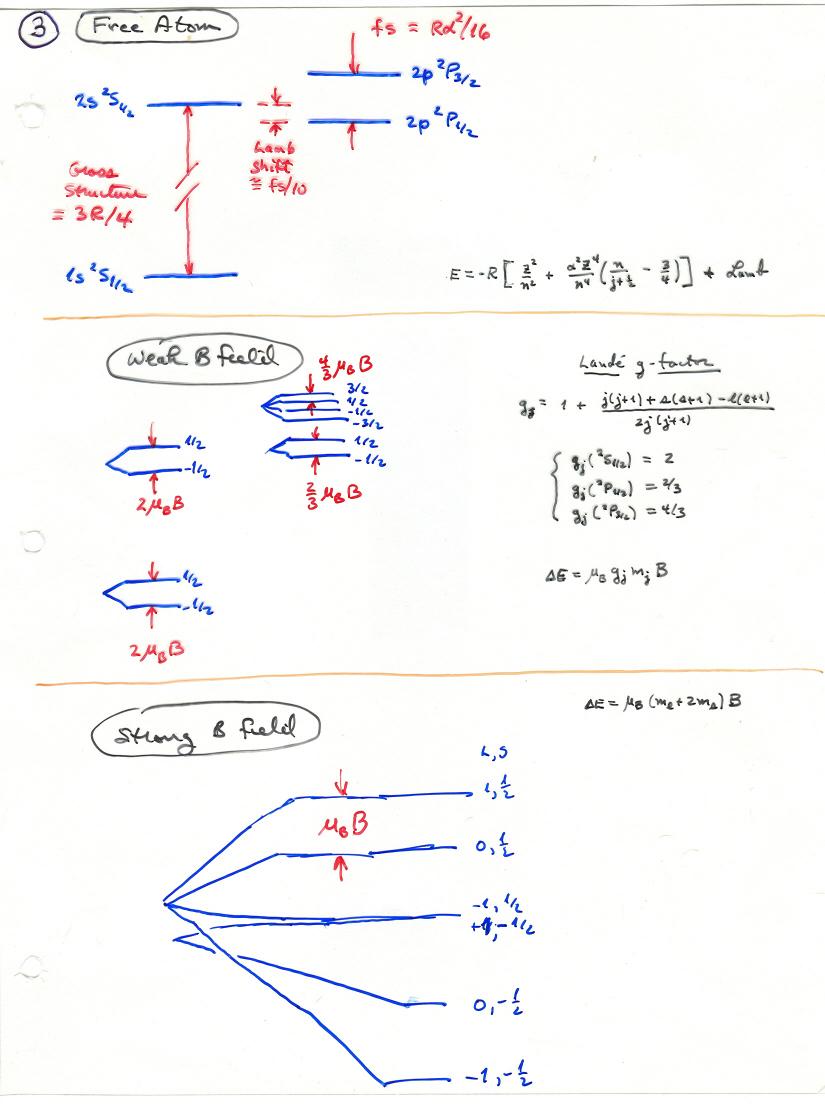 3 Free Atom
fs = Rα²/16
2p ²P3/2
2s ²S1/2
2p ²P1/2
Lamb
Shift
≅ fs/10
Gross
Structure
= 3R/4
1s ²S1/2
E = -R [ Z²/n² + α²Z⁴/n⁴ ( n/(j+½) - 3/4 ) ] + Lamb
Weak B field
4/3 μB B
3/2
1/2
-1/2
-3/2
1/2
-1/2
2/3 μB B
1/2
-1/2
2μB B
1/2
-1/2
2μB B
Landé g-factor
gj = 1 + (j(j+1) + s(s+1) - l(l+1)) / 2j(j+1)
gj(²S1/2) = 2
gj(²P1/2) = 2/3
gj(²P3/2) = 4/3
ΔE = μB gj mj B
Strong B field
ΔE = μB (ml + 2ms) B
L, S
1, 1/2
μB B
0, 1/2
-1, 1/2
+1, -1/2
0, -1/2
-1, -1/2